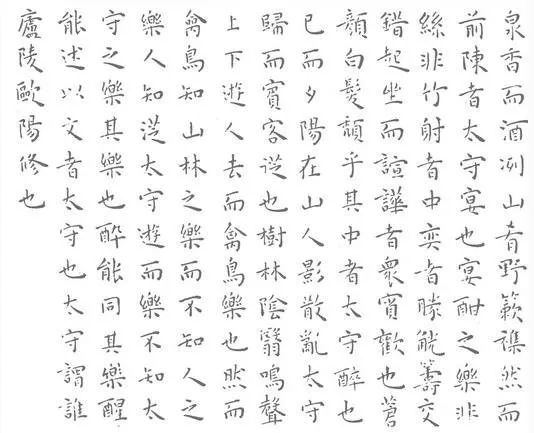 泉香而酒冽山肴野蔌襍然而
前陳者太守宴也宴酣之樂非
絲非竹射者中奕者勝觥籌交
錯起坐而諠譁者衆賓歡也蒼
顏白髮頹乎其中者太守醉也
已而夕陽在山人影散亂太守
歸而賓客從也樹林陰翳鳴聲
上下遊人去而禽鳥樂也然而
禽鳥知山林之樂而不知人之
樂人知從太守遊而樂不知太
守之樂其樂也醉能同其樂醒
能述以文者太守也太守謂誰
廬陵歐陽修也